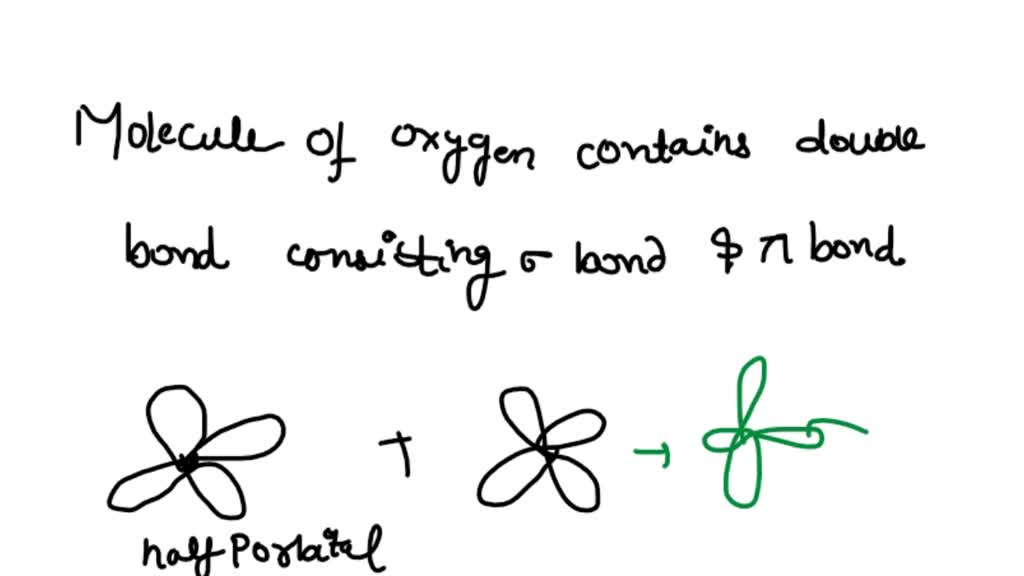 Molecule of oxygen contains double
bond consisting σ bond $ π bond
+ →
half Porbital